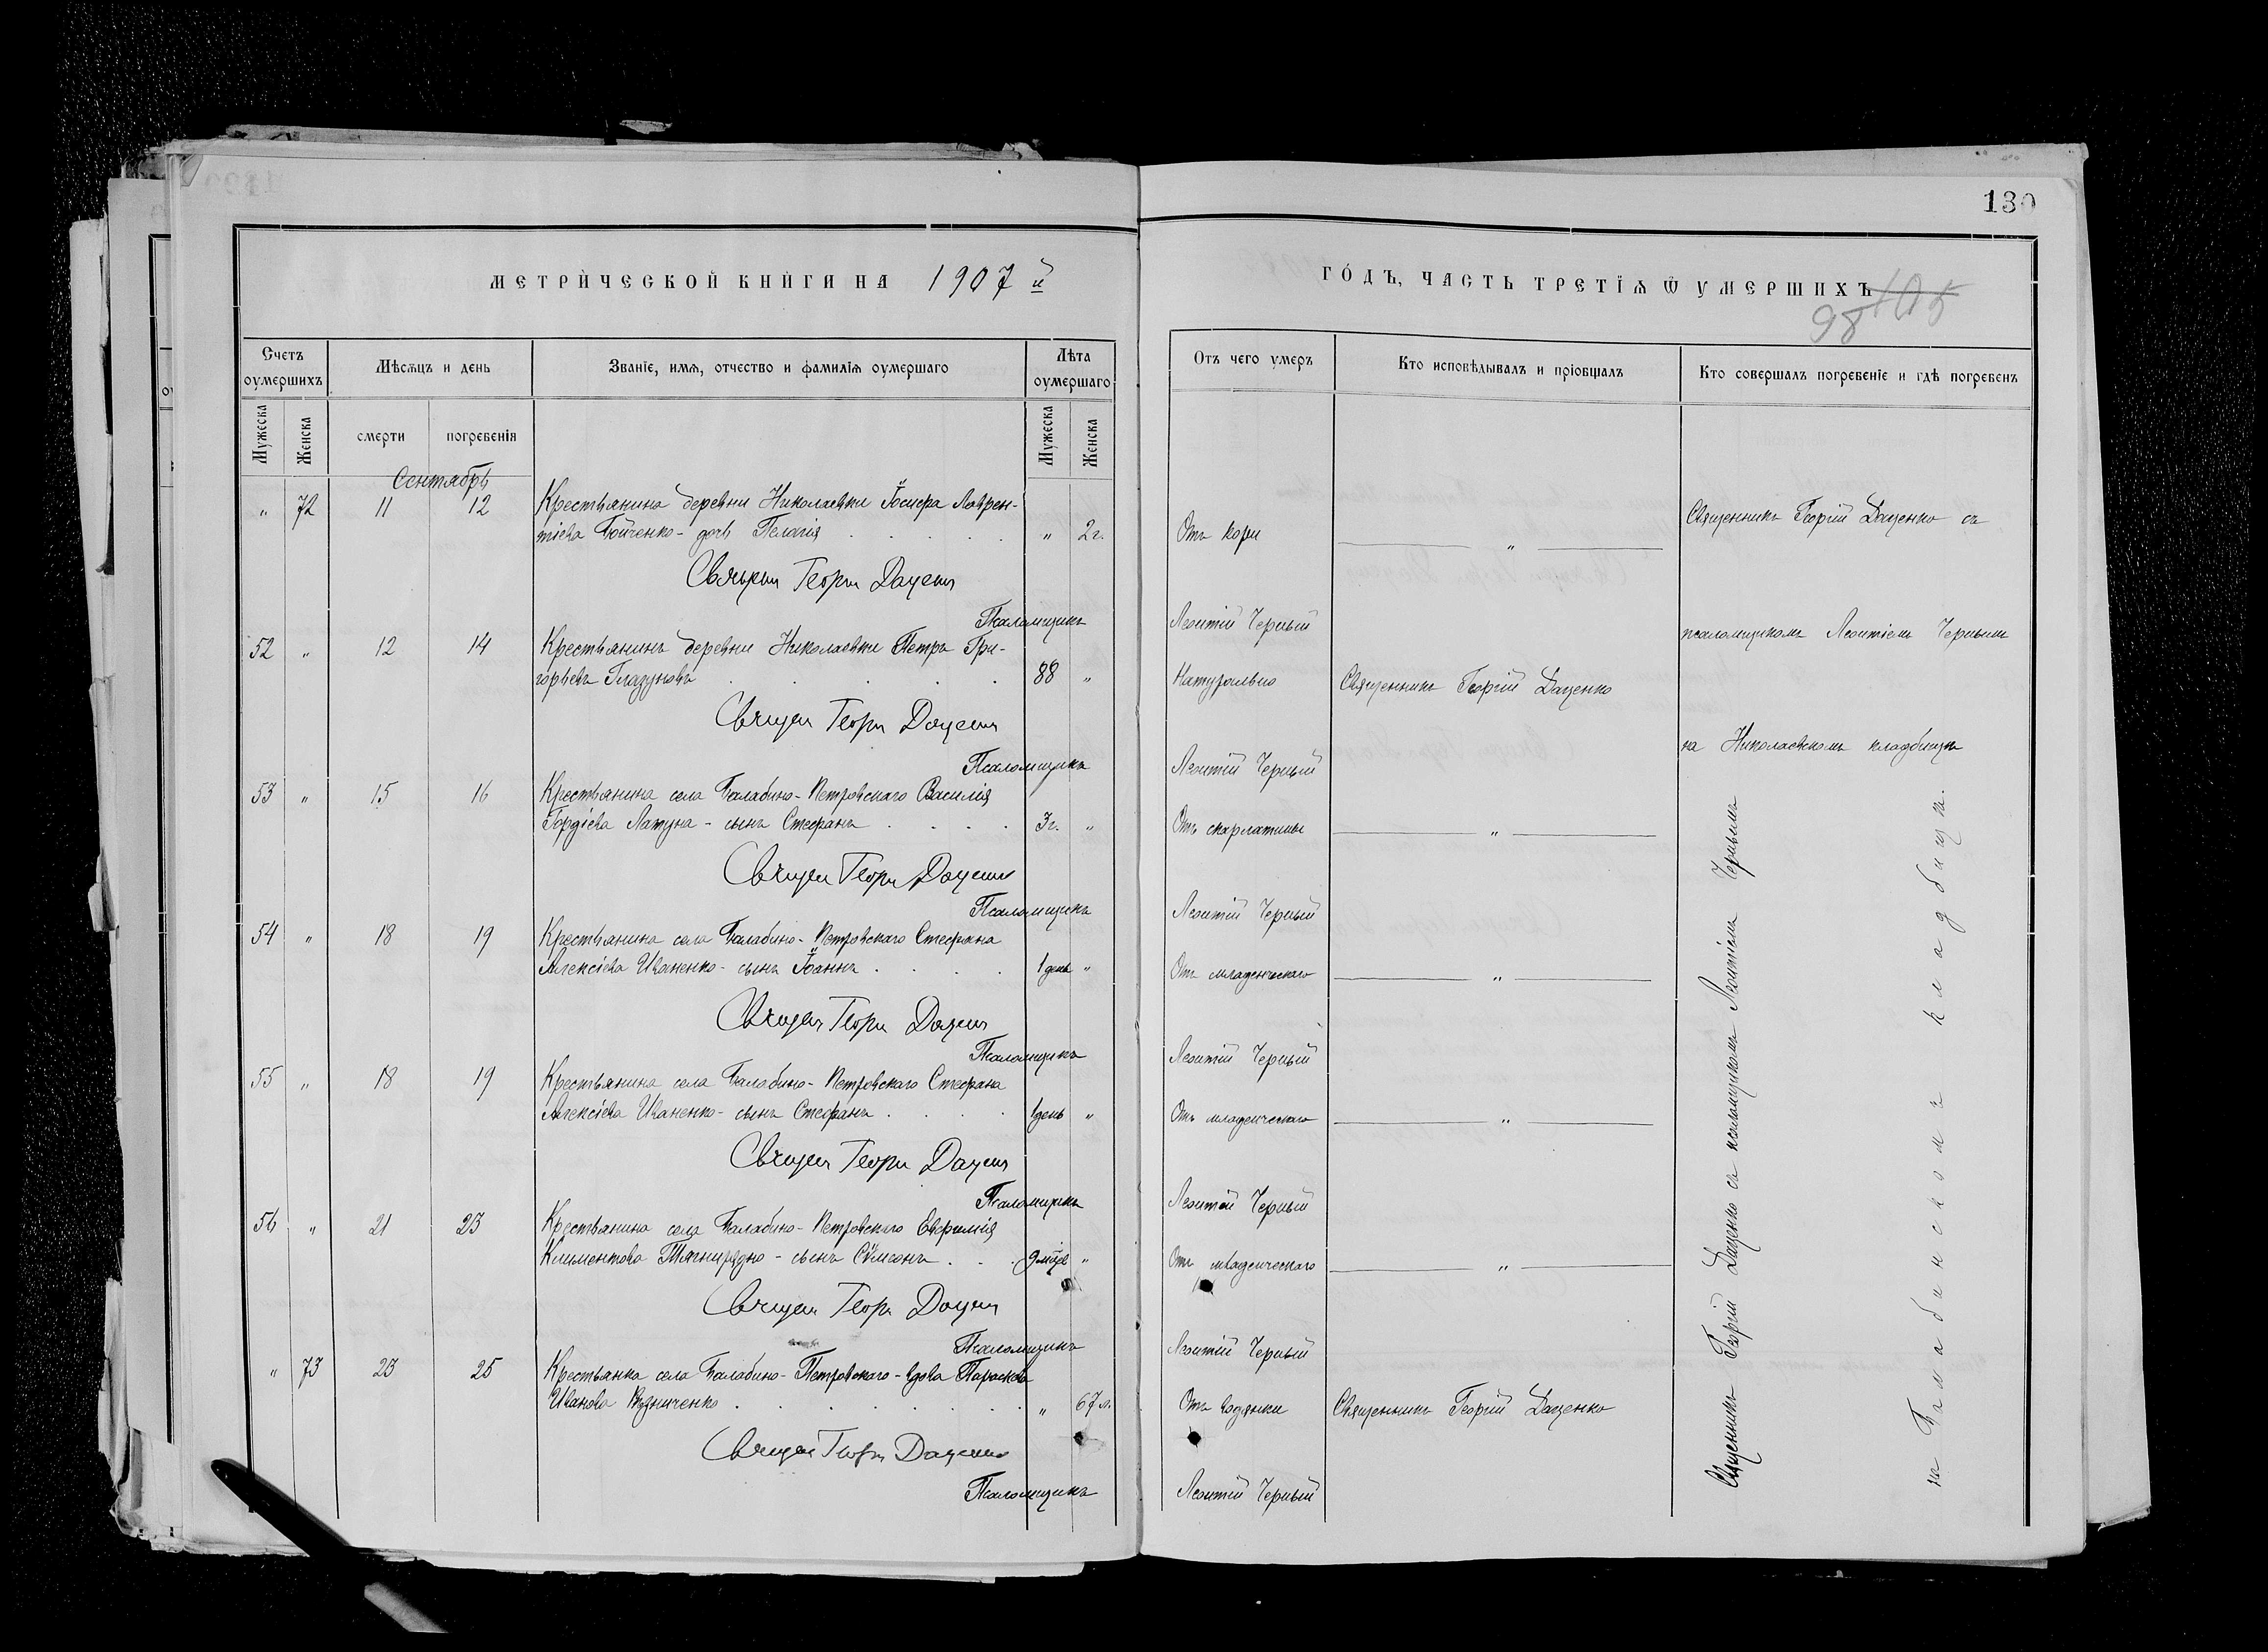 130
МЕТРИЧЕСКОЙ КНИГИ НА 1907 й
ГОДЪ, ЧАСТЬ ТРЕТІѦ Ѿ УМЕРШИХЪ
105
98
Счетъ оумершихъ
Мѣсѧцъ и день
Званіе, имѧ, отчество и фамиліѧ оумершаго
Лѣта оумершаго
Отъ чего умеръ
Кто исповѣдывалъ и пріобщалъ
Кто совершалъ погребеніе и гдѣ погребенъ
Мужеска
Женска
смерти
погребенія
Мужеска
Женска
Сентябрь
" 72 11 12 Крестьянина деревни Николаевки Іосифа Лаврен-
тіева Бойченко - дочь Пелагія " 2 г. Отъ кори "
Священникъ Георгій Даценко съ
Георгій Даценко
Псаломщикъ Леонтій Черный
псаломщикомъ Леонтіемъ Чернымъ
52 " 12 14 Крестьянинъ деревни Николаевки Петръ Гри-
горьевъ Глазуновъ 88 " Натурально Священникъ Георгій Даценко
Георгій Даценко
на Николаевскомъ кладбищѣ
Псаломщикъ Леонтій Черный
53 " 15 16 Крестьянина села Балабино-Петровскаго Василія
Гордіева Латуна - сынъ Стефанъ 3 г. " Отъ скарлатины "
Георгій Даценко
Псаломщикъ Леонтій Черный
54 " 18 19 Крестьянина села Балабино-Петровскаго Стефана
Алексіева Иваненко - сынъ Іоаннъ 1 день " Отъ младенческаго "
Георгій Даценко
Псаломщикъ Леонтій Черный
55 " 18 19 Крестьянина села Балабино-Петровскаго Стефана
Алексіева Иваненко - сынъ Стефанъ 1 день " Отъ младенческаго "
Георгій Даценко
Псаломщикъ Леонтій Черный
56 " 21 23 Крестьянина села Балабино-Петровскаго Евфимія
Климентова - сынъ Сѵмеонъ 9 мѣс " Отъ младенческаго "
Георгій Даценко
Псаломщикъ Леонтій Черный
" 73 23 25 Крестьянка села Балабино-Петровскаго - вдова Параскева
Иванова " 67 л. Отъ водянки Священникъ Георгій Даценко
Георгій Даценко
Псаломщикъ Леонтій Черный
Священникъ Георгій Даценко съ псаломщикомъ Леонтіемъ Чернымъ
на Балабинскомъ кладбищѣ.